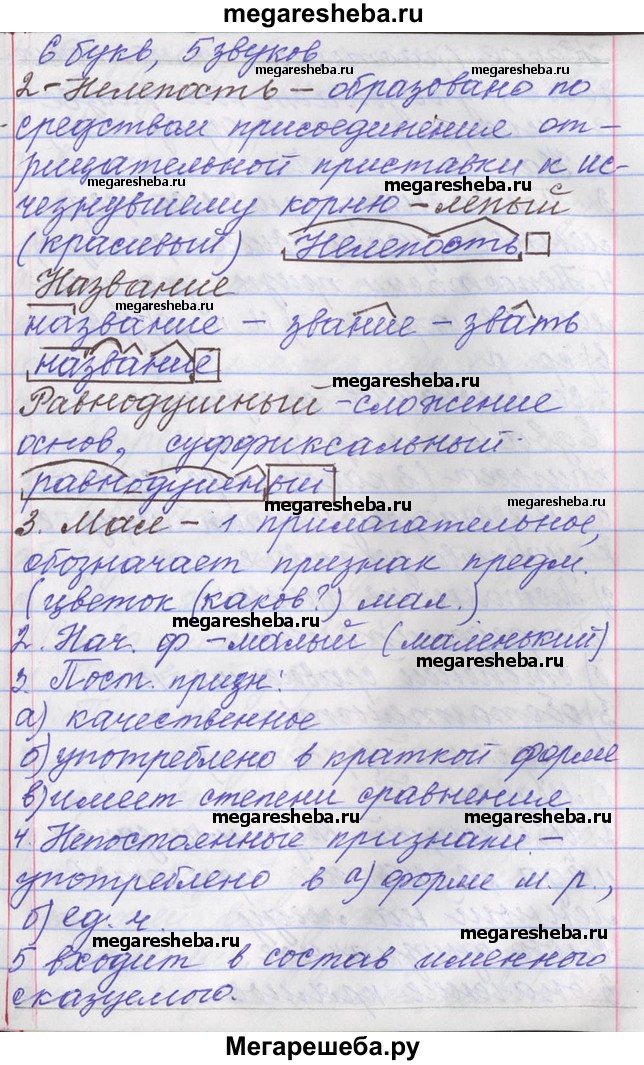 megaresheba.ru
6 букв, 5 звуков
megaresheba.ru megaresheba.ru
2- Нелепость – образовано по
средствам присоединения от-
рицательной приставки к ис-
megaresheba.ru megaresheba.ru
чезнувшему корню – лепый
(красивый) Нелепость
megaresheba.ru
Название
megaresheba.ru
название – звание – звать
название
megaresheba.ru
Равнодушный - сложение
основ, суффиксальный.
равнодушный
megaresheba.ru
3. Мал – 1. прилагательное,
обозначает признак предм.
(цветок (каков?) мал.)
megaresheba.ru
2. Нач. ф – малый (маленький)
megaresheba.ru
3. Пост. призн:
а) качественное
б) употреблено в краткой форме
в) имеет степени сравнения
4. Непостоянные признаки –
употреблено в а) форме м. р.,
б) ед. ч.
megaresheba.ru megaresheba.ru
5 входит в состав именного
сказуемого.
Мегарешеба.ру